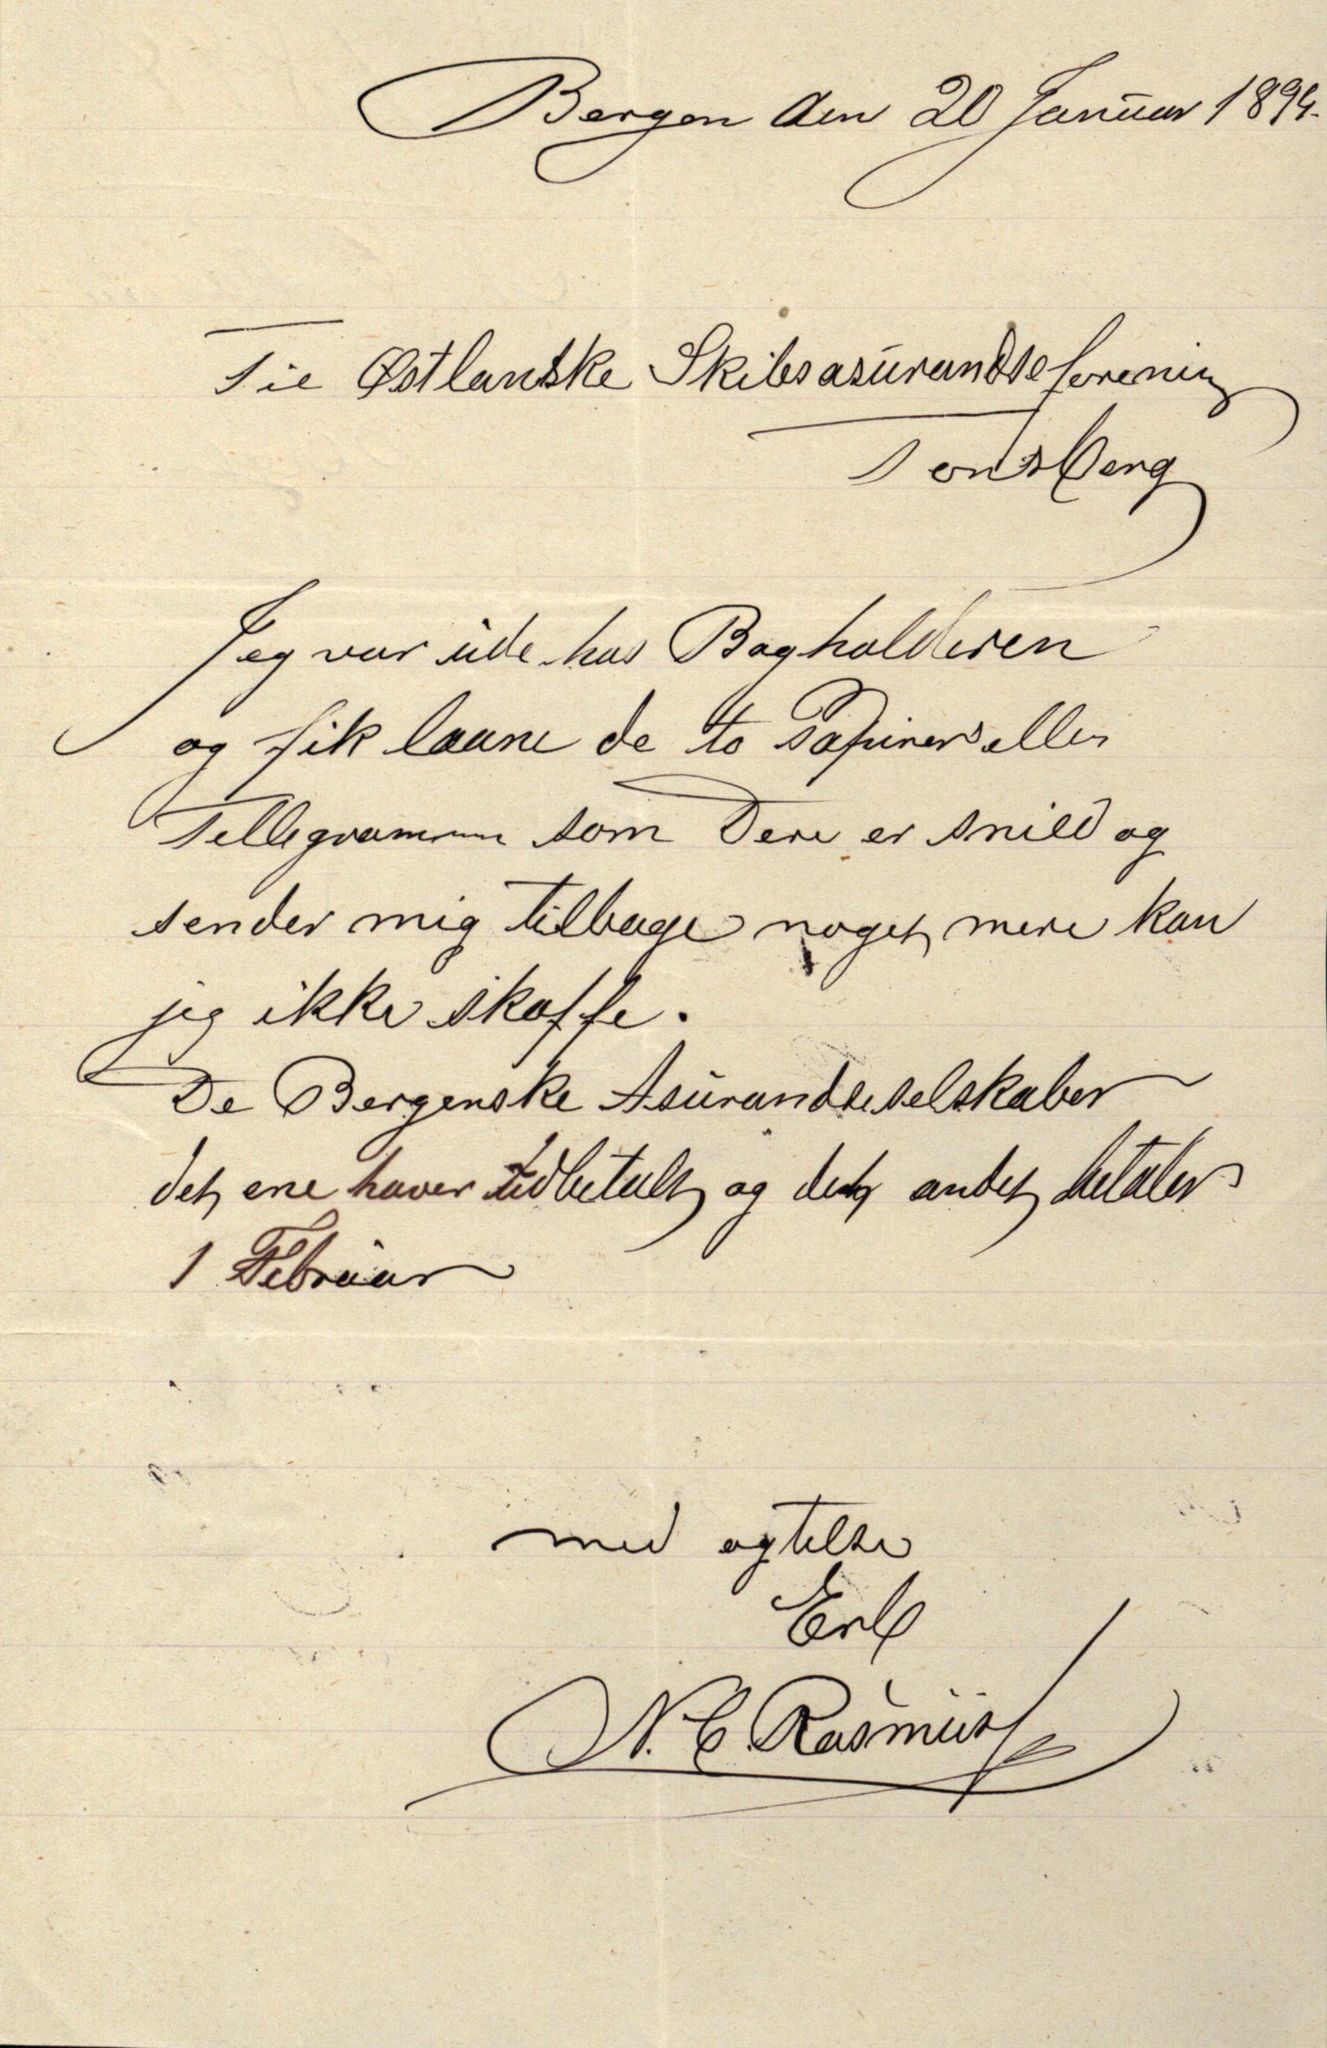 Bergen den 20 Januar 1894.
Til Østlanske Skibsasurandseforening
Tonsberg
Jeg var ude hos Bagholderen
og fik laane de to Papirer eller
Tellegrammer som Dere er snild og
sender mig tilbage noget mere kan
jeg ikke skaffe.
De Bergenske Asurandseselskaber
det ene haver udbetalt og det andet betaler
1 Februar
med agtelse
Erb
N. C. Rasmus